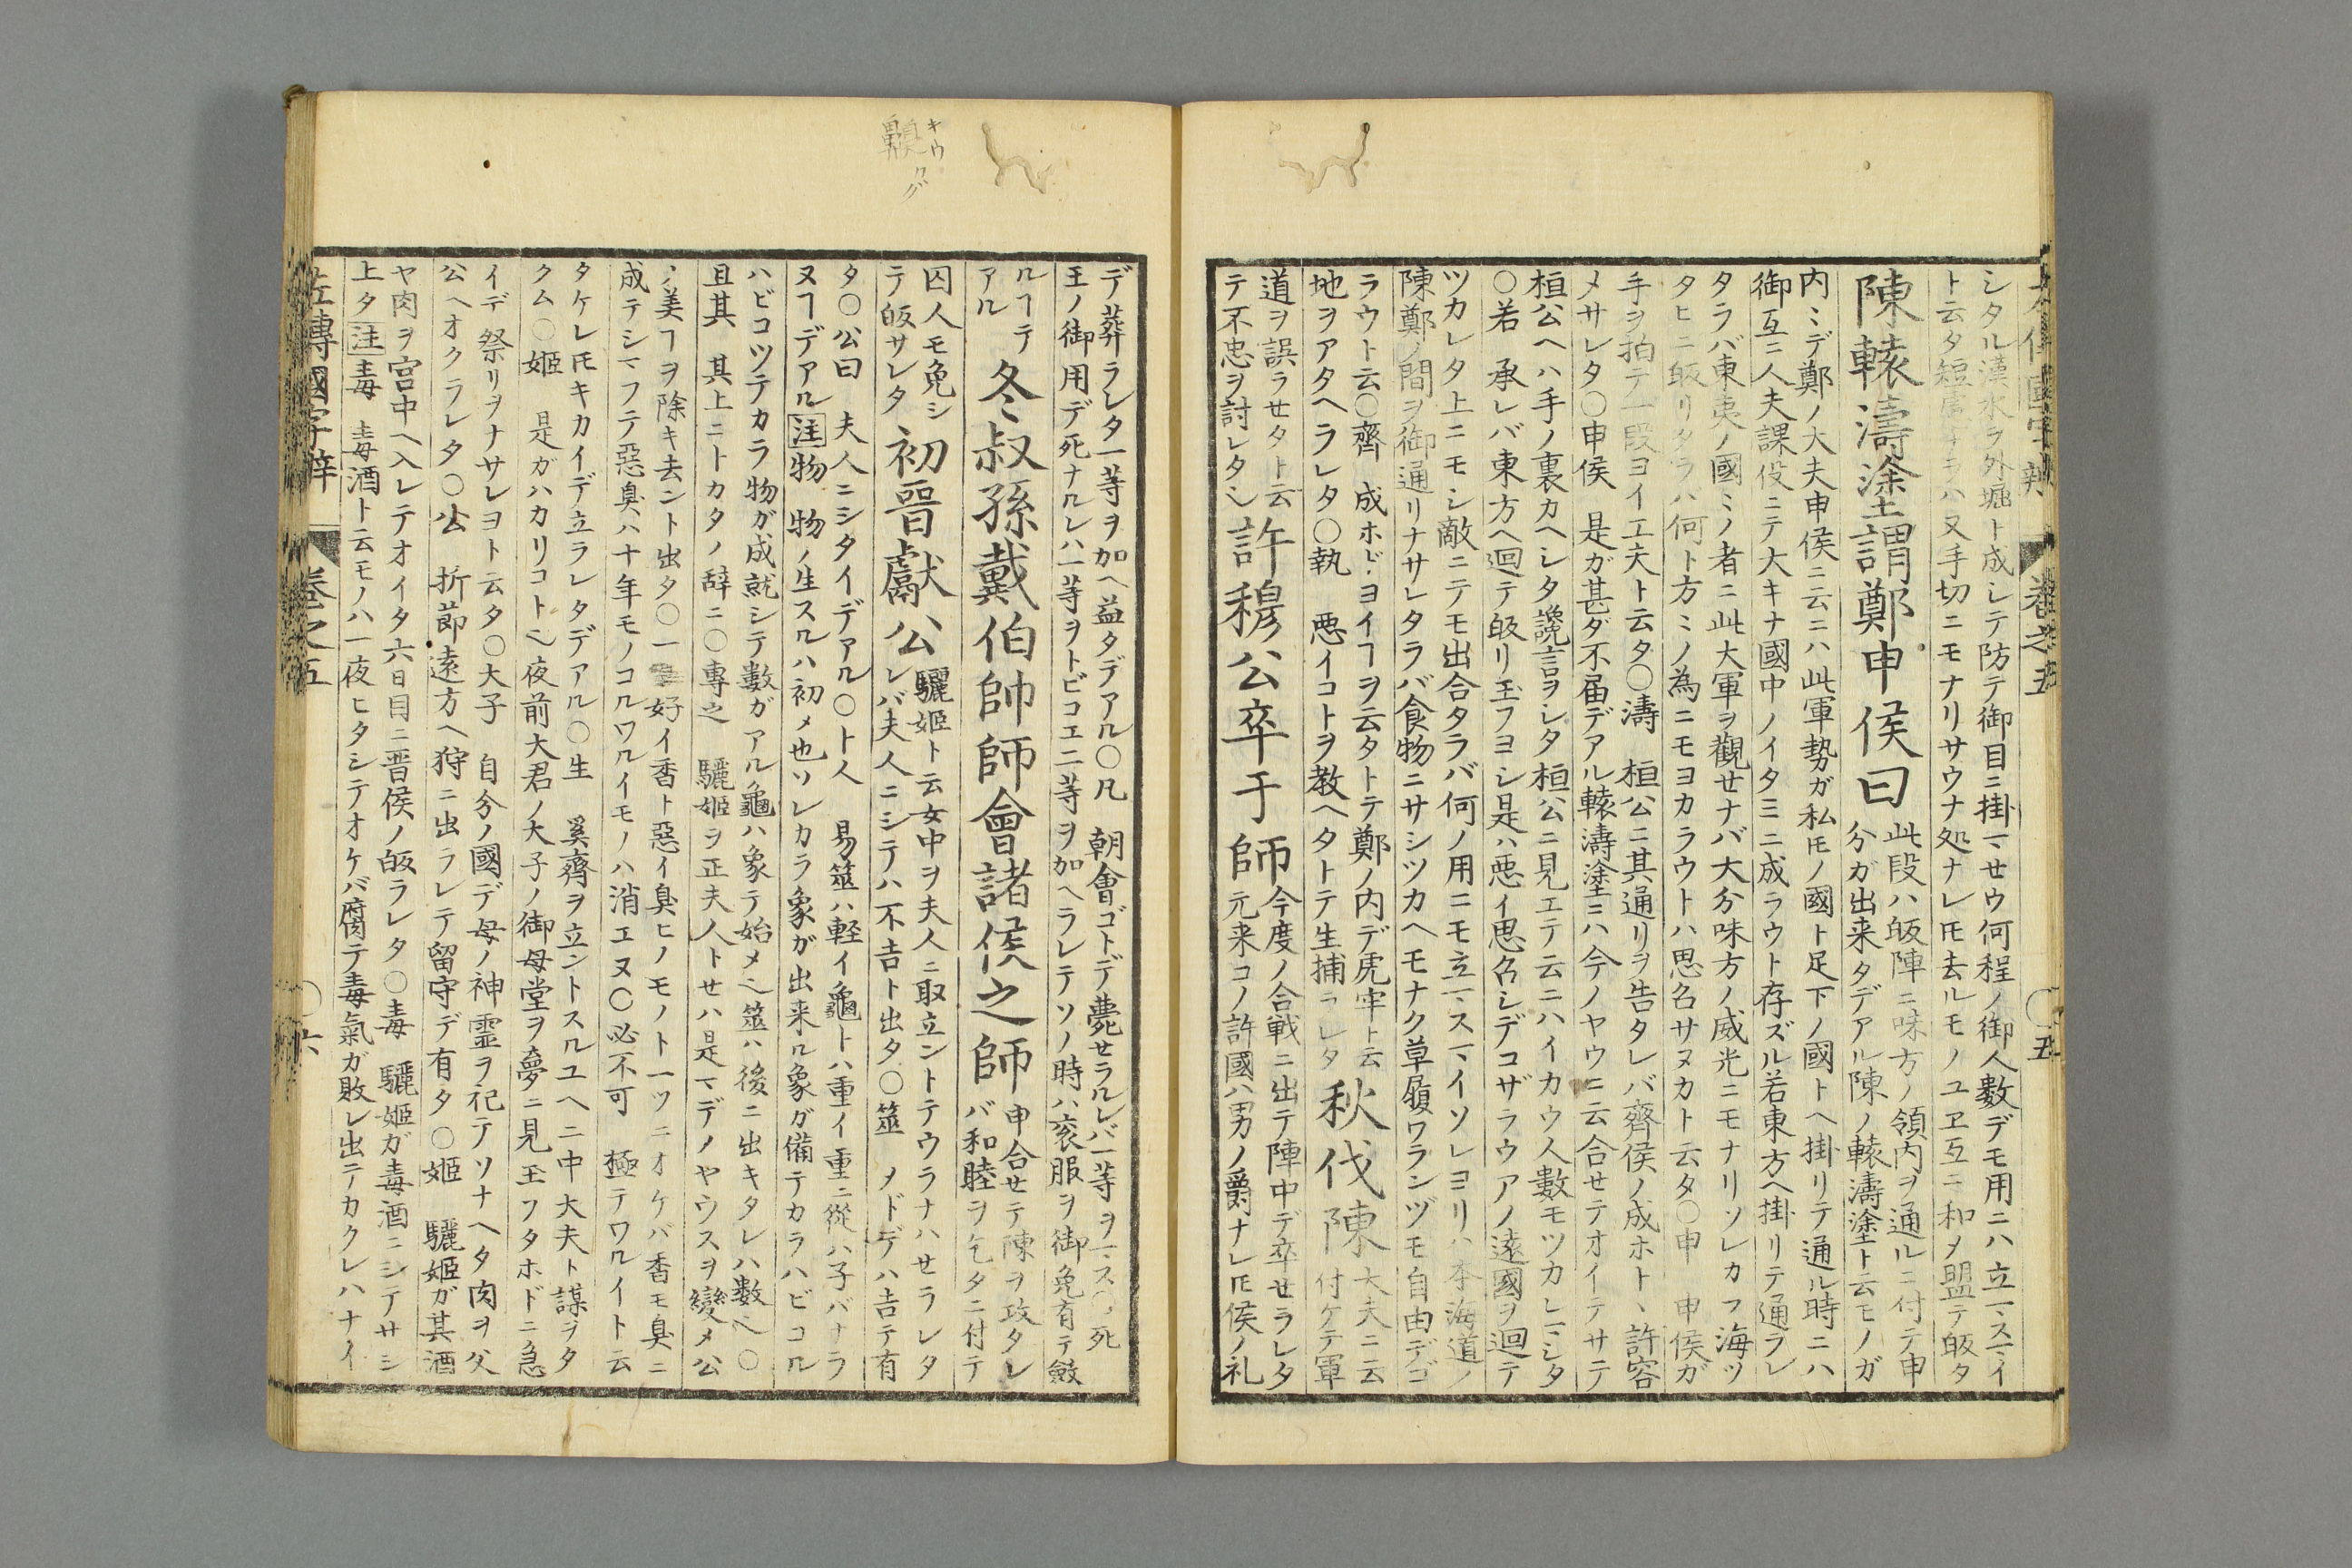 シタル漢水ヲ外堀ト成シテ防テ御目ニ掛マセウ何程ノ御人数デモ用ニハ立マスマイ
ト云タ短慮ナヲハ又手切ニモナリサウナ処ナレ𪜈去ルモノユヱ互ニ和メ盟テ皈タ
陳轅濤塗謂鄭申侯曰
此段ハ皈陣ニ味方ノ領内ヲ通ルニ付テ申
分ガ出来タデアル陳ノ轅濤塗ト云モノガ
内ミデ鄭ノ大夫申侯ニ云ニハ此軍勢ガ私𪜈ノ國ト足下ノ國トヘ掛リテ通ル時ニハ
御互ニ人夫課役ニテ大キナ國中ノイタミニ成ラウト存ズル若東方ヘ掛リテ通ラレ
タラバ東夷ノ國ミノ者ニ此大軍ヲ觀せナバ大分味方ノ威光ニモナリソレカラ海ツ
タヒニ皈リタラバ何ト方ミノ為ニモヨカラウトハ思召サヌカト云タ〇申 申侯ガ
手ヲ拍テ一段ヨイ工夫ト云タ〇濤 桓公ニ其通リヲ告タレバ齊侯ノ成ホトヽ許容
メサレタ〇申侯 是ガ甚ダ不届デアル轅濤塗ニハ今ノヤウニ云合せテオイテサテ
桓公ヘハ手ノ裏カヘシタ讒言ヲシタ桓公ニ見エテ云ニハイカウ人數モツカレマシタ
〇若 承レバ東方ヘ迴テ皈リ玉フヨシ是ハ悪イ思召シデコザラウアノ遠國ヲ迴テ
ツカレタ上ニモシ敵ニテモ出合タラバ何ノ用ニモ立マスマイソレヨリハ本海道ノ
陳鄭ノ間ヲ御通リナサレタラバ食物ニサシツカヘモナク草履ワランヅモ自由デゴ
ラウト云〇齊 成ホドヨイヿヲ云タトテ鄭ノ内デ虎牢ト云
地ヲアタヘラレタ〇執 悪イコトヲ教ヘタトテ生捕ラレタ
秋伐陳
大夫ニ云
付ケテ軍
道ヲ誤ラせタト云
テ不忠ヲ討レタ乀
許穆公卒于師
今度ノ合戦ニ出テ陣中デ卒せラレタ
元来コノ許國ハ男ノ爵ナレ𪜈侯ノ礼
デ葬ラレタ一等ヲ加ヘ益タデアル〇凡 朝會ゴトデ薨せラルレバ一等ヲマス 死
王ノ御用デ死ナルレハ一等ヲトビコエ二等ヲ加ヘラレテソノ時ハ衮服ヲ御免有テ斂
ルヿテ
アル
冬叔孫戴伯帥師會諸侯之師
申合せテ陳ヲ攻タレ
バ和睦ヲ乞タニ付テ
囚人モ免シ
テ皈サレタ
初晉獻公
驪姫ト云女中ヲ夫人ニ取立ントテウラナハせラレタ
レバ夫人ニシテハ不吉ト出タ〇筮 メドデハ吉テ有
タ〇公曰 夫人ニシタイデアル〇ト人 易筮ハ軽イ龜トハ重イ重ニ從ハ子バナラ
ヌヿデアル注物 物ノ生スルハ初メ也ソレカラ象ガ出来ル象ガ備テカラハビコル
ハビコツテカラ物ガ成就シテ數ガアル龜ハ象テ始メ乀筮ハ後ニ出キタレハ數乀〇
且其 其上ニトカタノ辞ニ〇専之 驪姫ヲ正夫人トせハ是マデノヤウスヲ變メ公
ノ美ヿヲ除キ去ント出タ〇一 好イ香ト惡イ臭ヒノモノト一ツニオケバ香モ臭ニ
成テシマフテ惡臭ハ十年モノコルワルイモノハ消エヌ〇必不可 極テワルイト云
タケレ𪜈キカイデ立ラレタデアル〇生 奚齊ヲ立ントスルユヘニ中大夫ト謀ヲタ
クム〇姫 是ガハカリコト乀夜前大君ノ大子ノ御母堂ヲ夢ニ見玉フタホドニ急
イデ祭リヲナサレヨト云タ〇大子 自分ノ國デ母ノ神霊ヲ祀テソナヘタ肉ヲ父
公ヘオクラレタ〇公 折節遠方ヘ狩ニ出ラレテ留守デ有タ〇姫 驪姫ガ其酒
ヤ肉ヲ宮中ヘ入レテオイタ六日目ニ晋侯ノ皈ラレタ〇毒 驪姫ガ毒酒ニシテサシ
上タ注毒 毒酒ト云モノハ一夜ヒタシテオケバ腐テ毒氣ガ敗レ出テカクレハナイ
左傳國字辯 巻之五 〇六